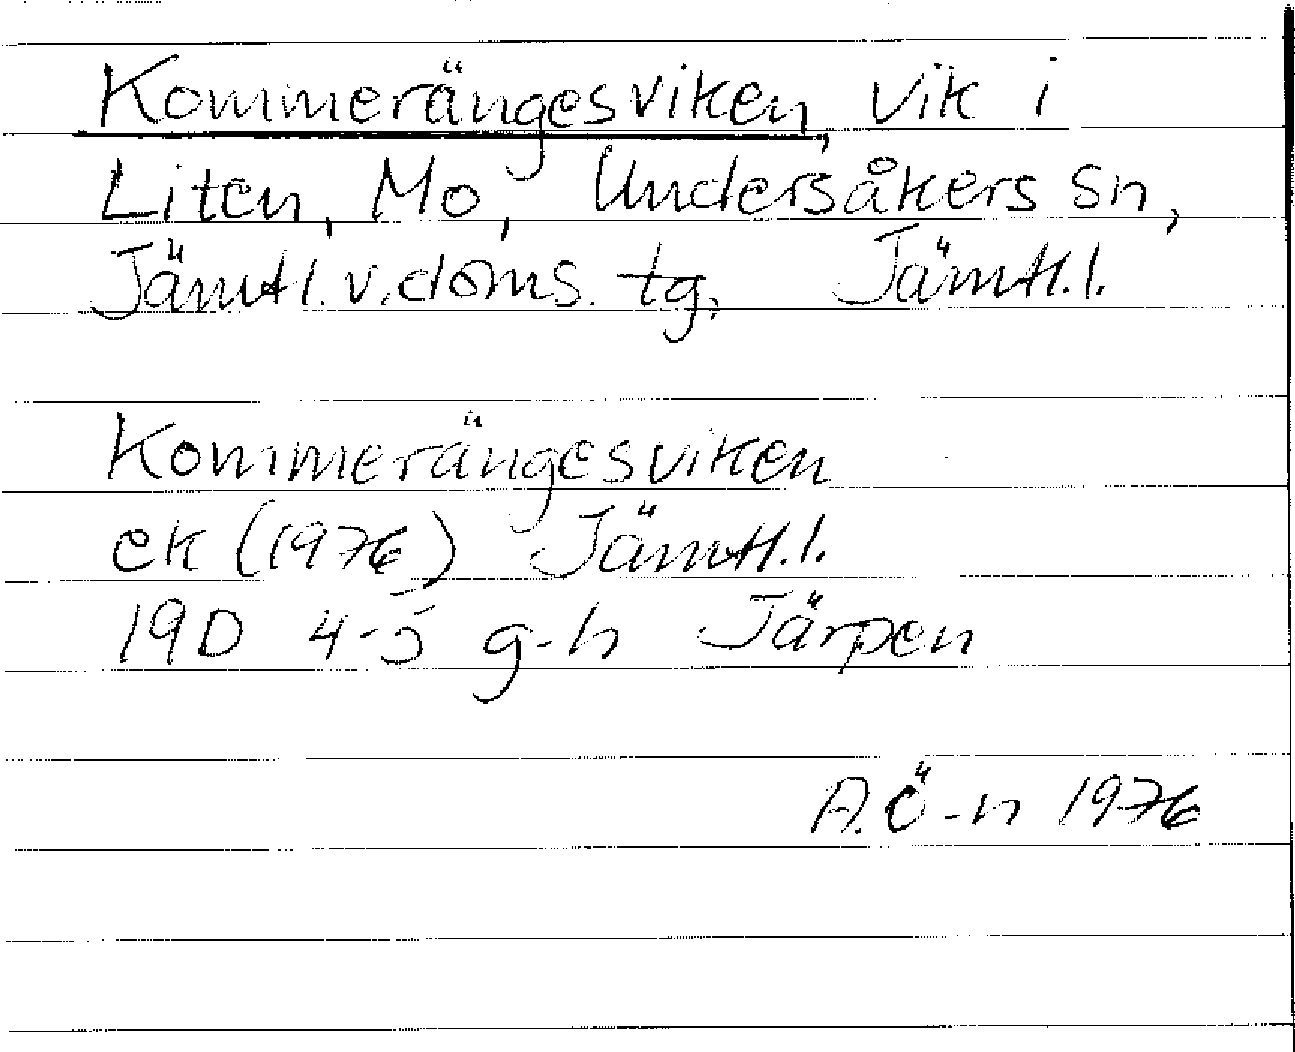 Kommerängesviken, vik i
Liten, Mo, Undersåkers sn,
Jämtl. v. doms. tg. Jämtl. l.
Kommerängesviken
ek (1976) Jämtl. l.
19D 4-5 g-h Järpen
A. Ö-n 1976